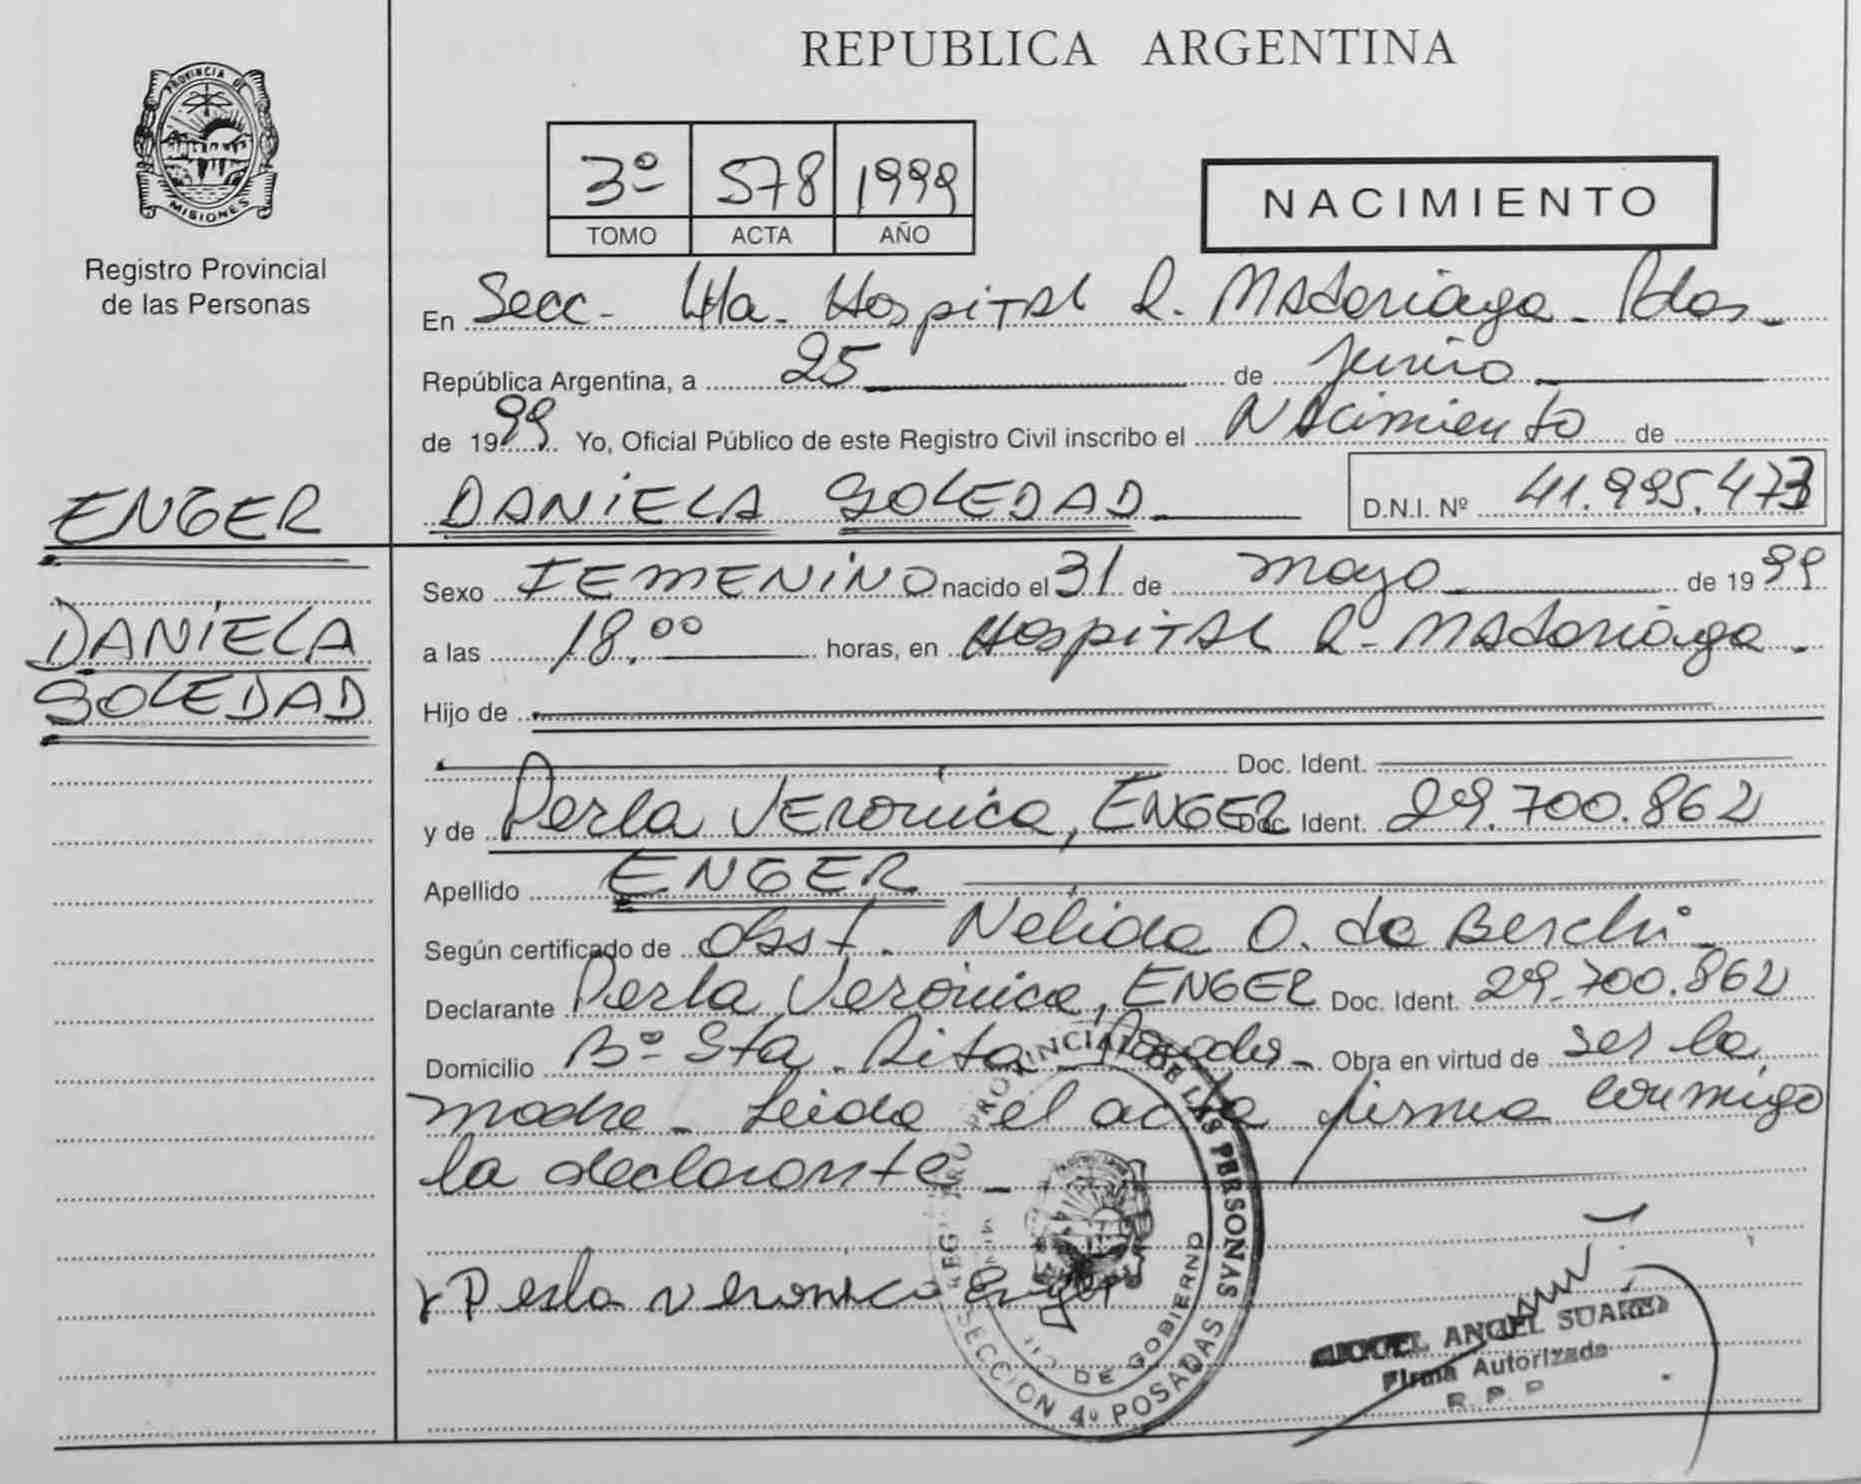 PROVINCIA DE
MISIONES
Registro Provincial
de las Personas
ENGER
DANIELA
SOLEDAD
REPUBLICA ARGENTINA
3º 578 1999
TOMO ACTA AÑO
NACIMIENTO
En Secc. 4ta. Hospital R. Madariaga - Pdas.
República Argentina, a 25 de junio
de 1999 Yo, Oficial Público de este Registro Civil inscribo el Nacimiento de
DANIELA SOLEDAD D.N.I. Nº 41.995.473
Sexo FEMENINO nacido el 31 de mayo de 1999
a las 18.00 horas, en Hospital R. Madariaga.
Hijo de
Doc. Ident.
y de Perla Verónica, ENGER Doc. Ident. 29.700.862
Apellido ENGER
Según certificado de Obst. Nelida O. de
Declarante Perla Verónica, ENGER Doc. Ident. 29.700.862
Domicilio Bº Sta. Rita Posadas - Obra en virtud de ser la
madre - Leida el acta firma conmigo
la declarante -
x Perla veronica Enger
REGISTRO PROVINCIAL DE LAS PERSONAS
DE GOBIERNO
SECCION 4º POSADAS
ANGEL SUAREZ
Firma Autorizada
R. P. P.